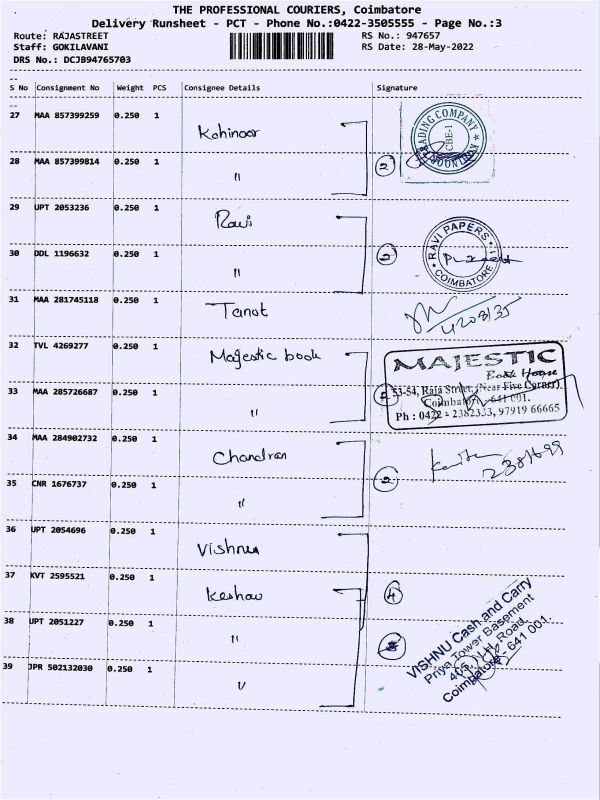 THE PROFESSIONAL COURIERS, Coimbatore
Delivery Runsheet - PCT - Phone No.:0422-3505555 - Page No.:3
Route: RAJASTREET
RS No.: 947657
Staff: GOKILAVANI
RS Date: 28-May-2022
DRS No.: DCJB94765703
S No Consignment No Weight PCS Consignee Details Signature
27 MAA 857399259 0.250 1 Kohinoor
TRADING COMPANY
CBE-1
28 MAA 857399814 0.250 1 "
2
29 UPT 2053236 0.250 1 Ravi
RAVI PAPERS
COIMBATORE
30 DDL 1196632 0.250 1 "
2
31 MAA 281745118 0.250 1 Tanot
4208135
32 TVL 4269277 0.250 1 Majestic book
MAJESTIC
Book House
33 MAA 285726687 0.250 1 "
53-54, Raja Street, (Near Five Corner)
Coimbatore - 641 001.
Ph : 0422 - 2382333, 97919 66665
34 MAA 284902732 0.250 1 Chandran
2381699
35 CNR 1676737 0.250 1 "
2
36 UPT 2054696 0.250 1 Vishnu
37 KVT 2595521 0.250 1 Keshav
4
38 UPT 2051227 0.250 1 "
39 JPR 502132030 0.250 1 "
VISHNU Cash and Carry
Priya Tower Basement
Road,
Coimbatore - 641 001.